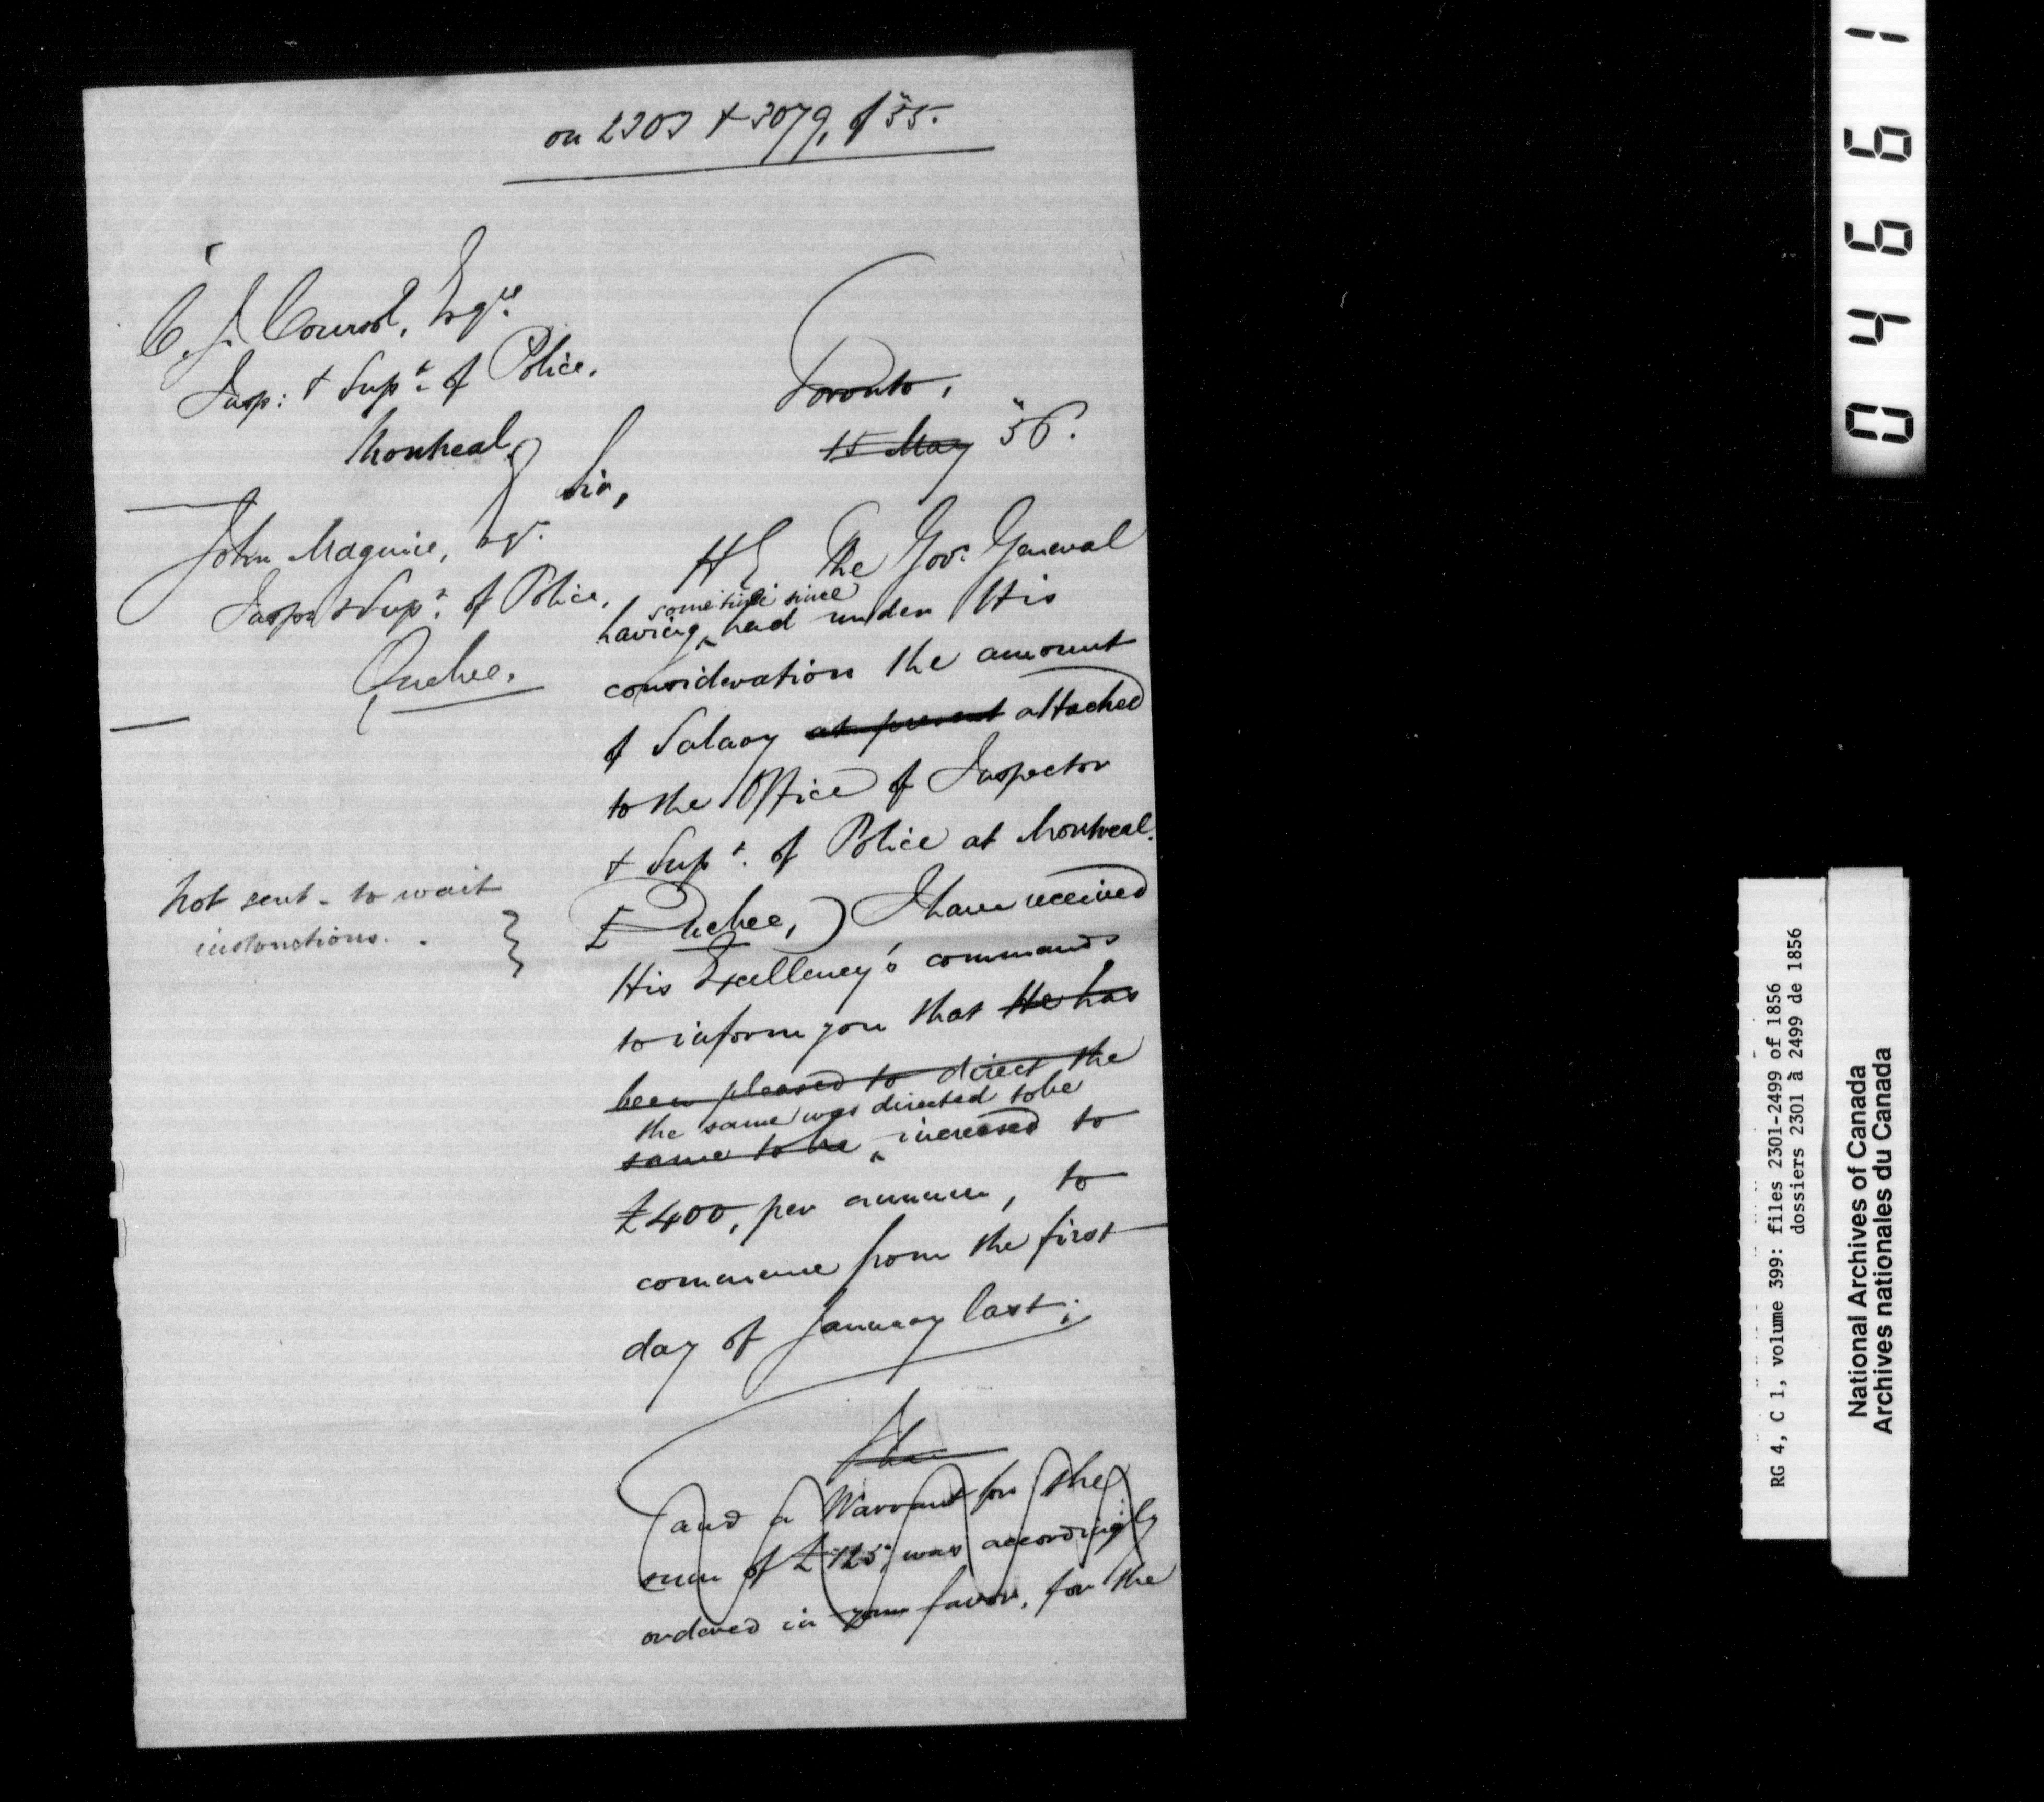 on 2303 & 3079, of "55.
C. J. Coursol, Esqre
Insp: & Supt. of Police.
Montreal.
Toronto,
15 May "56.
John Maguire, Esqr.
Insp: & Supt. of Police,
Quebec.
Sir,
HE The Govr. General
some time since
having ^ had under His
consideration the amount
of Salary at present attached
to the Office of Inspector
& Supt. of Police at Montreal.
[Quebec,) I have received
His Excellency's commands
to inform you that He has
been pleased to direct the
the same was directed to be
same to be ^ increased to
£400, per annum, to
commence from the first
day of January last;
not sent - to wait
instructions. .
and a Warrant for the
sum of £125, was accordingly
ordered in your favor, for the
04661
RG 4, C 1, volume 399: files 2301-2499 of 1856
dossiers 2301 à 2499 de 1856
National Archives of Canada
Archives nationales du Canada